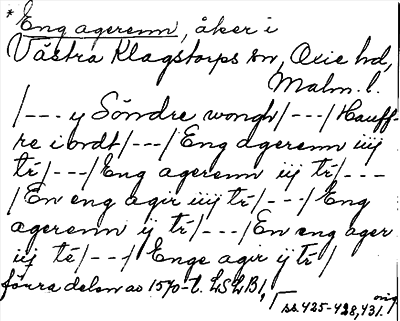 * Eng agerenn, åker i
Västra Klagstorps sn, Oxie hd,
Malm. l.
/--- y Söndre wongh/---/Hauff-
re i ordt/---/Eng agerenn iiij
tr/---/Eng agerenn iij tr/---
/En eng agir iiij tr/---/Eng
agerenn ij tr/---/En eng ager
iij te/---/Enge agir ij tr/
förra delen av 1570-t. LSLB1,
ss. 425-428, 431. orig